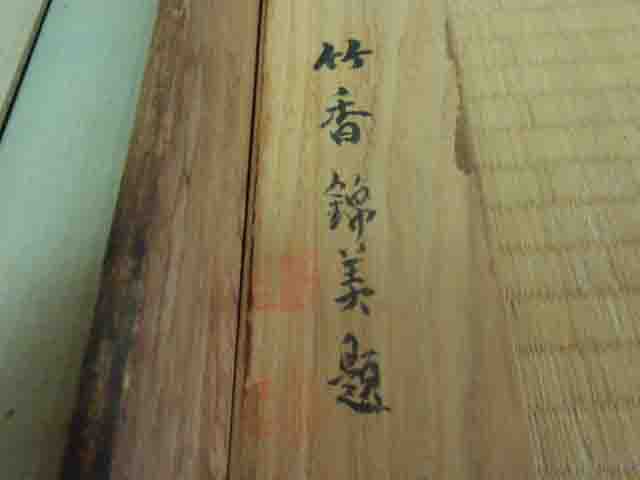 竹香錦美題